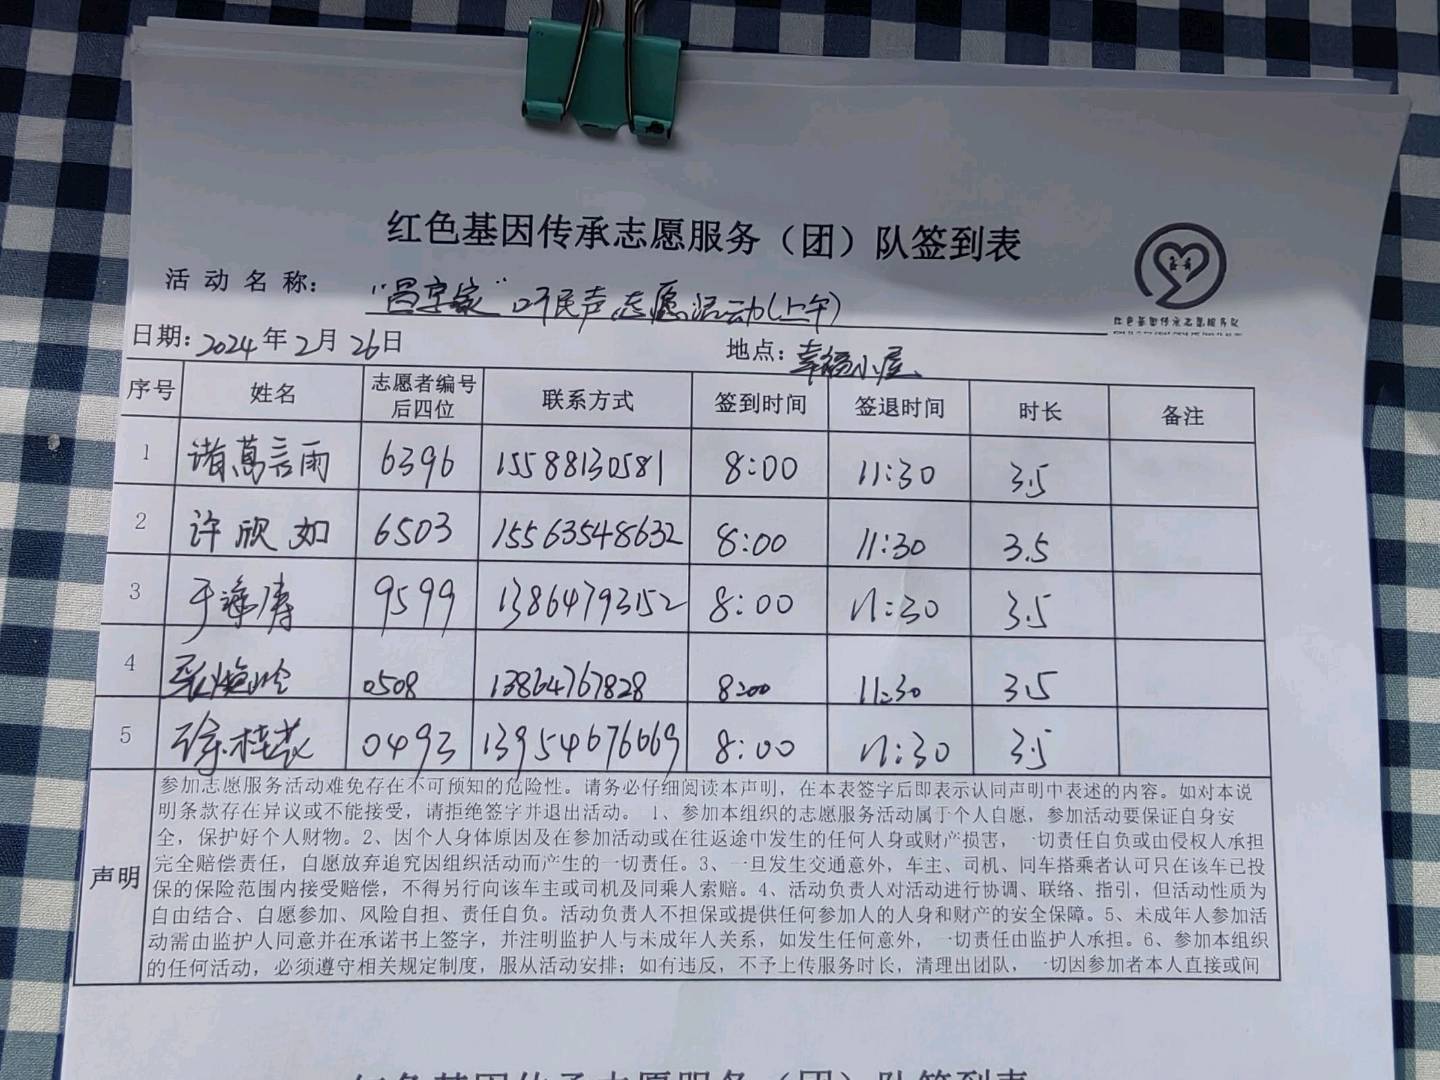 红色基因传承志愿服务（团）队签到表
活动名称： "昌宇家"听民声志愿活动(上午)
红色基因传承志愿服务队
日期：2024年2月26日 地点：幸福小屋
序号 姓名 志愿者编号后四位 联系方式 签到时间 签退时间 时长 备注
1 诸葛言雨 6396 15588130581 8:00 11:30 3.5
2 许欣如 6503 15563548632 8:00 11:30 3.5
3 于海涛 9599 13864793152 8:00 11:30 3.5
4 0508 13864767828 8:00 11:30 3.5
5 徐桂花 0493 13954676069 8:00 11:30 3.5
声明
参加志愿服务活动难免存在不可预知的危险性。请务必仔细阅读本声明，在本表签字后即表示认同声明中表述的内容。如对本说
明条款存在异议或不能接受，请拒绝签字并退出活动。 1、参加本组织的志愿服务活动属于个人自愿，参加活动要保证自身安
全，保护好个人财物。2、因个人身体原因及在参加活动或在往返途中发生的任何人身或财产损害，一切责任自负或由侵权人承担
完全赔偿责任，自愿放弃追究因组织活动而产生的一切责任。3、一旦发生交通意外，车主、司机、同车搭乘者认可只在该车已投
保的保险范围内接受赔偿，不得另行向该车主或司机及同乘人索赔。4、活动负责人对活动进行协调、联络、指引，但活动性质为
自由结合、自愿参加、风险自担、责任自负。活动负责人不担保或提供任何参加人的人身和财产的安全保障。5、未成年人参加活
动需由监护人同意并在承诺书上签字，并注明监护人与未成年人关系，如发生任何意外，一切责任由监护人承担。6、参加本组织
的任何活动，必须遵守相关规定制度，服从活动安排；如有违反，不予上传服务时长，清理出团队，一切因参加者本人直接或间
红色基因传承志愿服务（团）队签到表